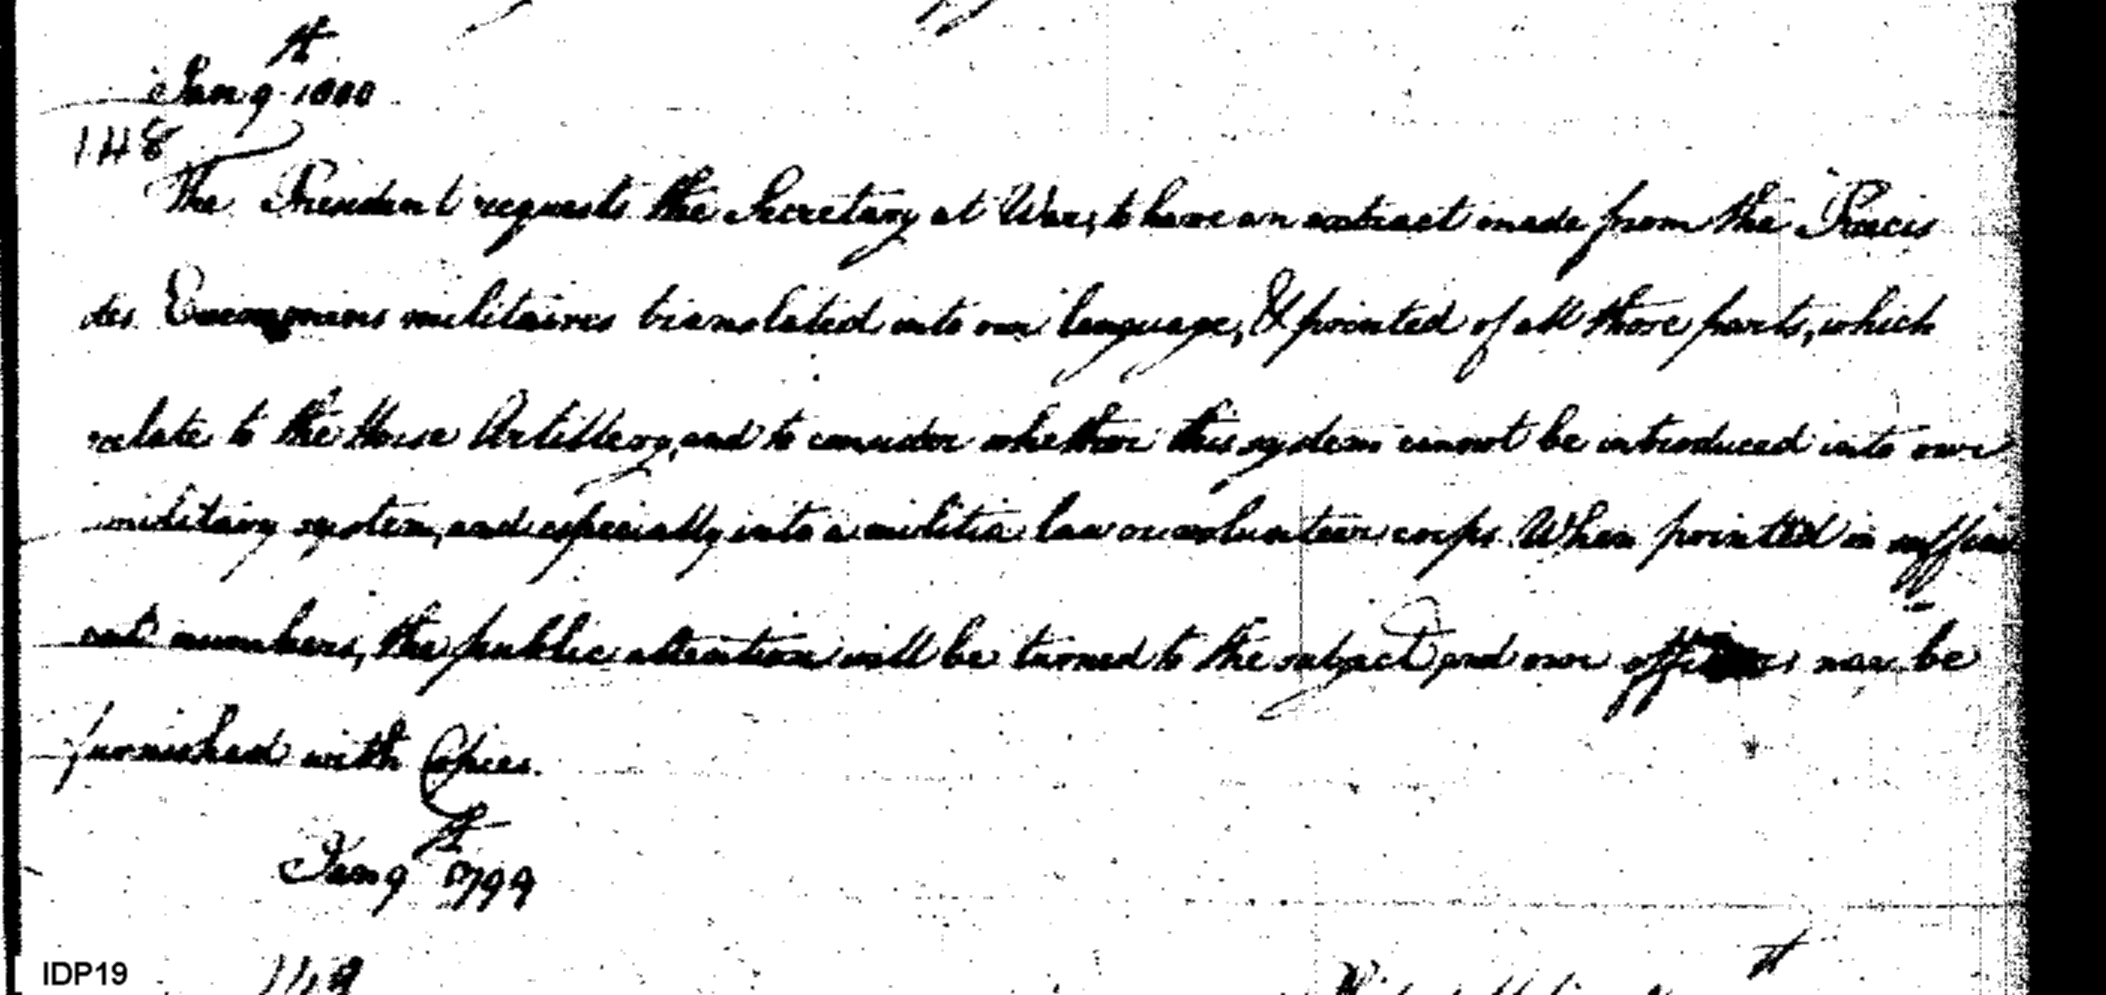 Jan 9th 1800
148
The President requests the Secretary at War, to have an extract made from the Precis
des militaires translated into our language, & printed of all those parts, which
relate to the Horse Artillery, and to consider whether this system cannot be introduced into our
military system, and especially into a militia law or volunteer corps. When printed in suffici
ent numbers, the public attention will be turned to the subject, and our officers may be
furnished with Copies.
Jan 9th 1799
IDP19
149